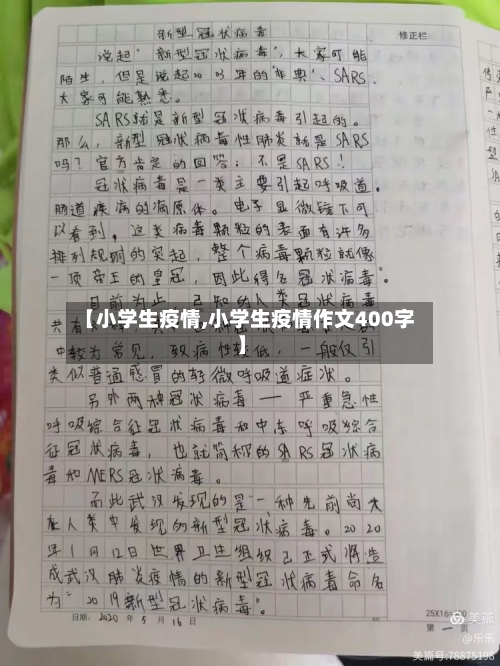 新型冠状病毒
修正栏
说起"新型冠状病毒",大家可能
陌生,但是说起2003年的"非典"、SARS、
大家可能熟悉。
SARS就是新型冠状病毒引起的。
那么,新型冠状病毒性肺炎就是SARS
吗?官方肯定的回答:不是SARS!
冠状病毒是一类主要引起呼吸道、
肠道疾病的病原体。电子显微镜下可
以看到,这类病毒颗粒的表面有许多
排列规则的突起,整个病毒颗粒就像
一顶帝王的皇冠,因此得名冠状病毒。
目前为止,已知的人类冠状病毒
共有
【小学生疫情,小学生疫情作文400字
】
中较为常见,致病性较低,一般仅引
类似普通感冒的轻微呼吸道症状。
另外两种冠状病毒——严重急性
呼吸综合征冠状病毒和中东呼吸综合
征冠状病毒,也就简称的SARS冠状病
毒和MERS冠状病毒。
而此武汉发现的是一种先前尚未
在人类中发现的新型冠状病毒。2020
年1月12日世界卫生组织已正式将造
成武汉肺炎疫情的新型冠状病毒命名
为"2019新型冠状病毒"。
日期: 2020 年 5 月 16 日
25X16=400
第 一 页
美篇
@乐乐
美篇号:78875198